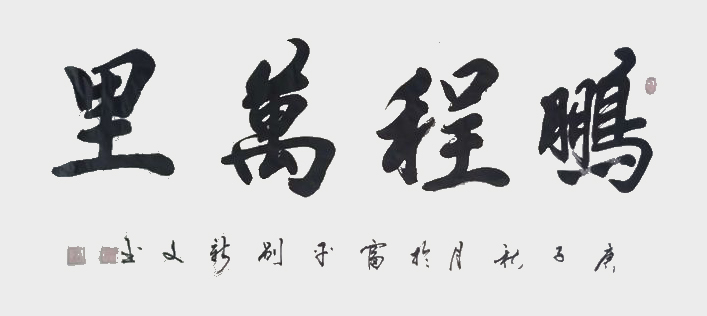 鵬程萬里
庚子秋月於富平刘新文书